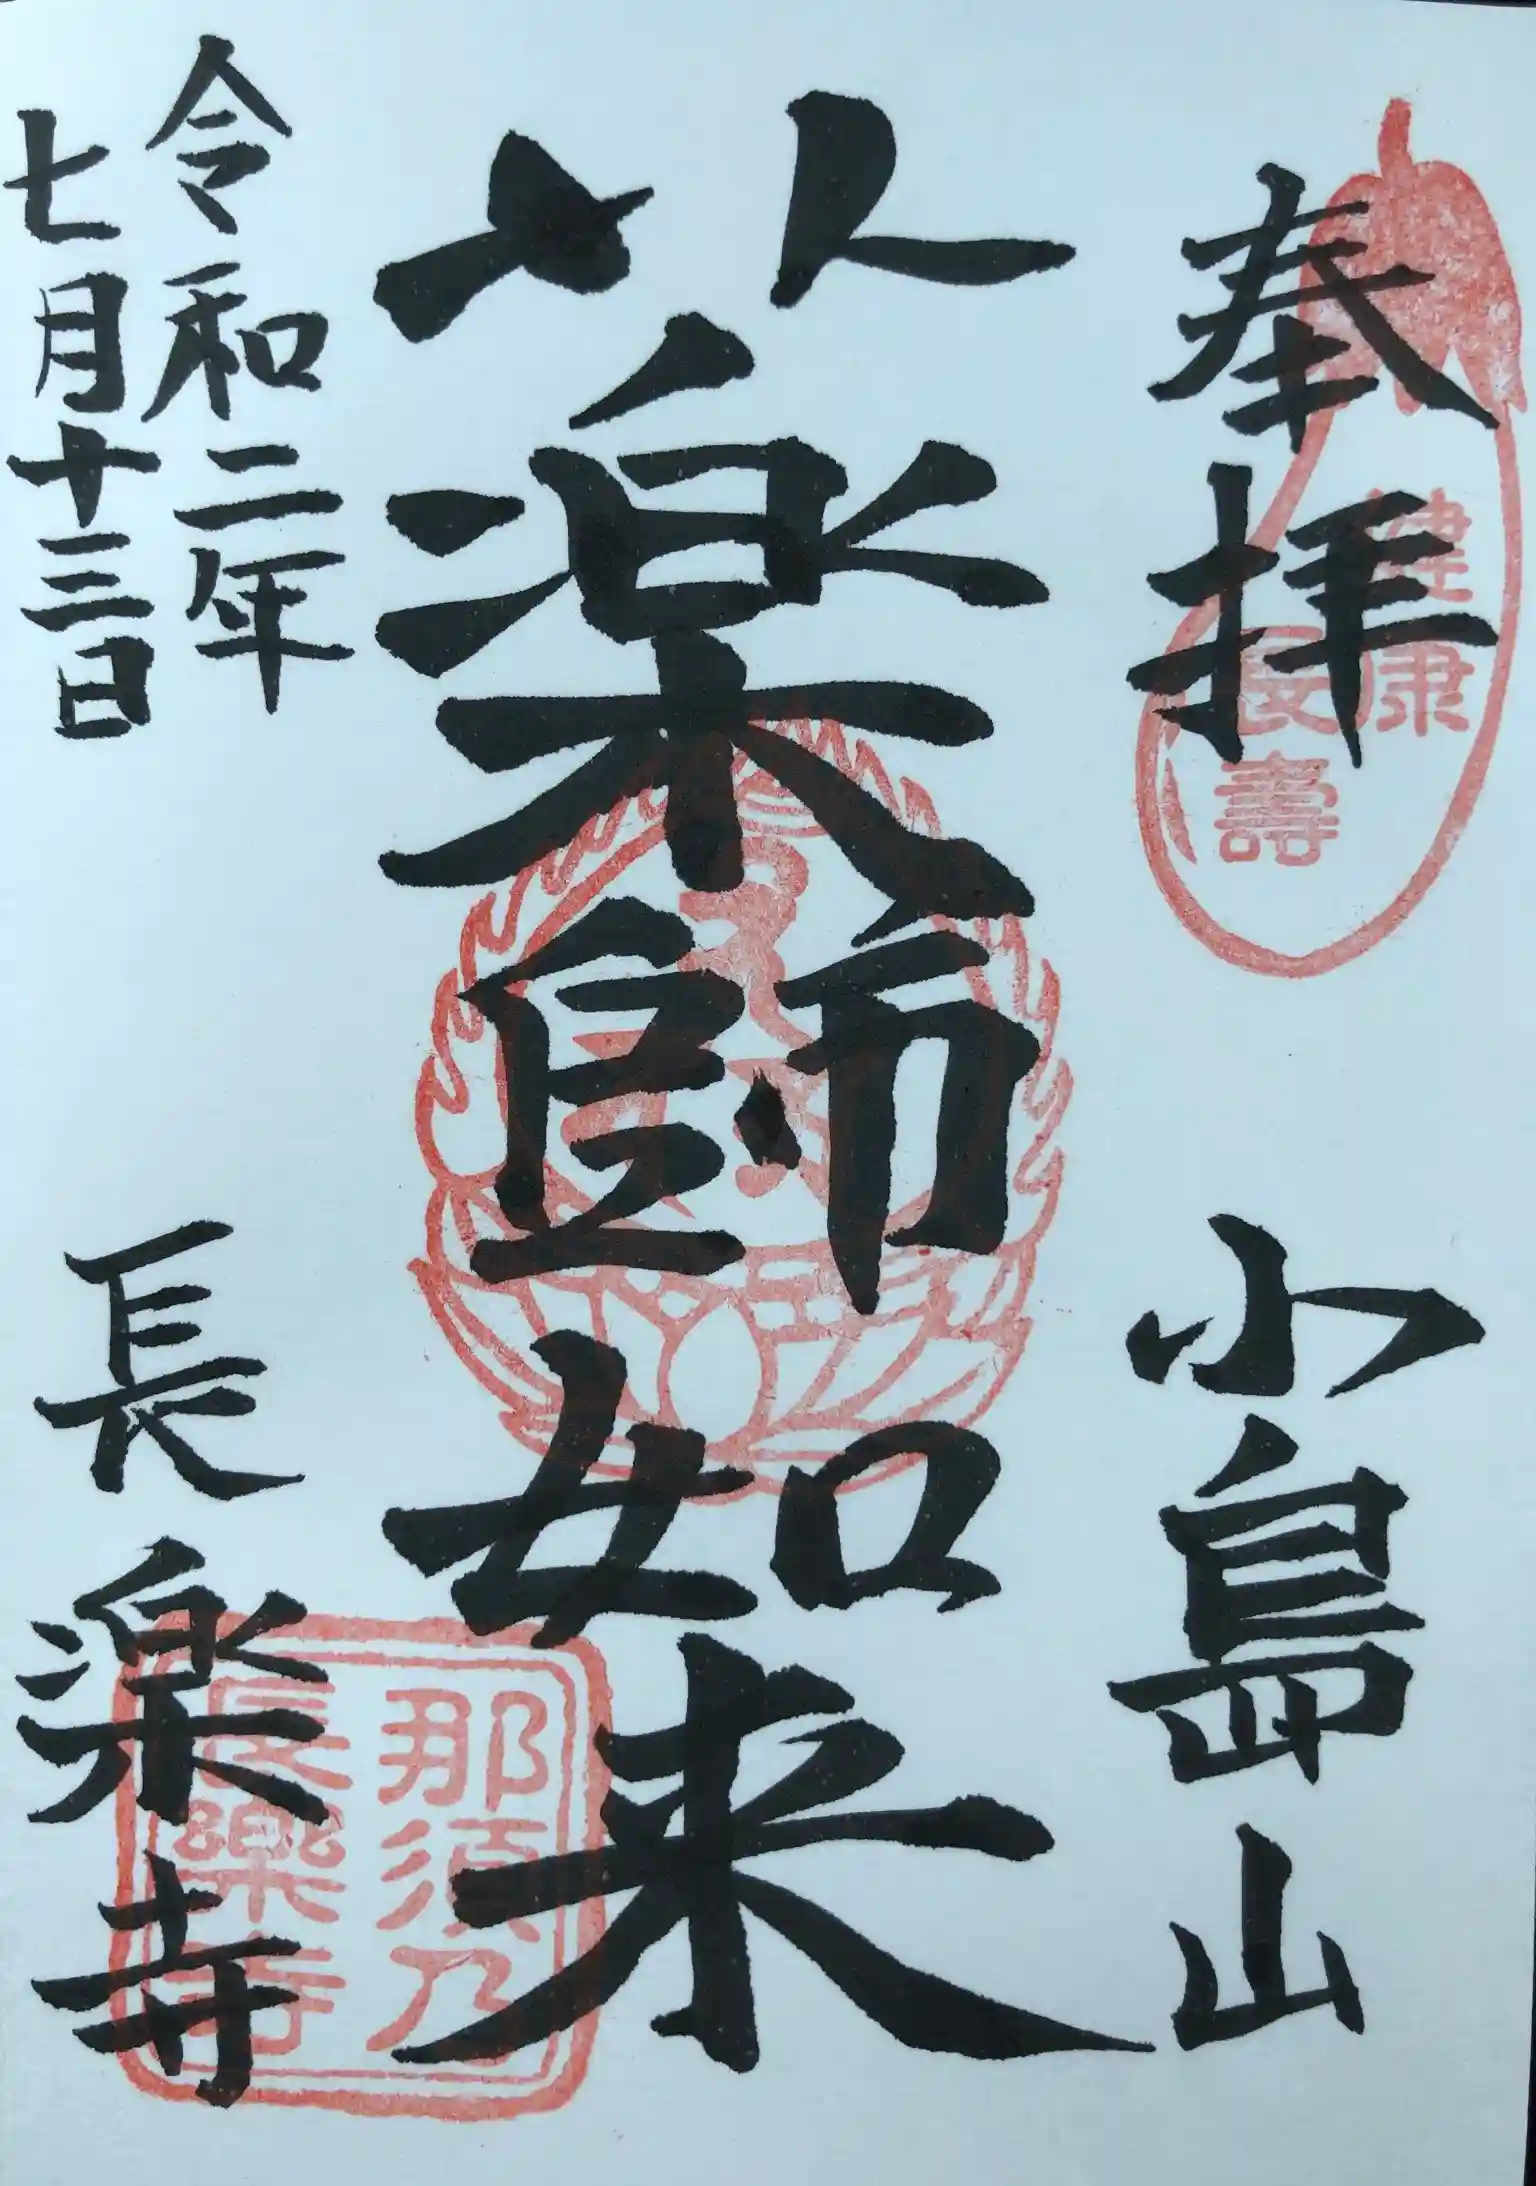 奉拝
小島山
健康
長壽
薬師如来
令和二年
七月十三日
長楽寺
那須乃
長樂寺